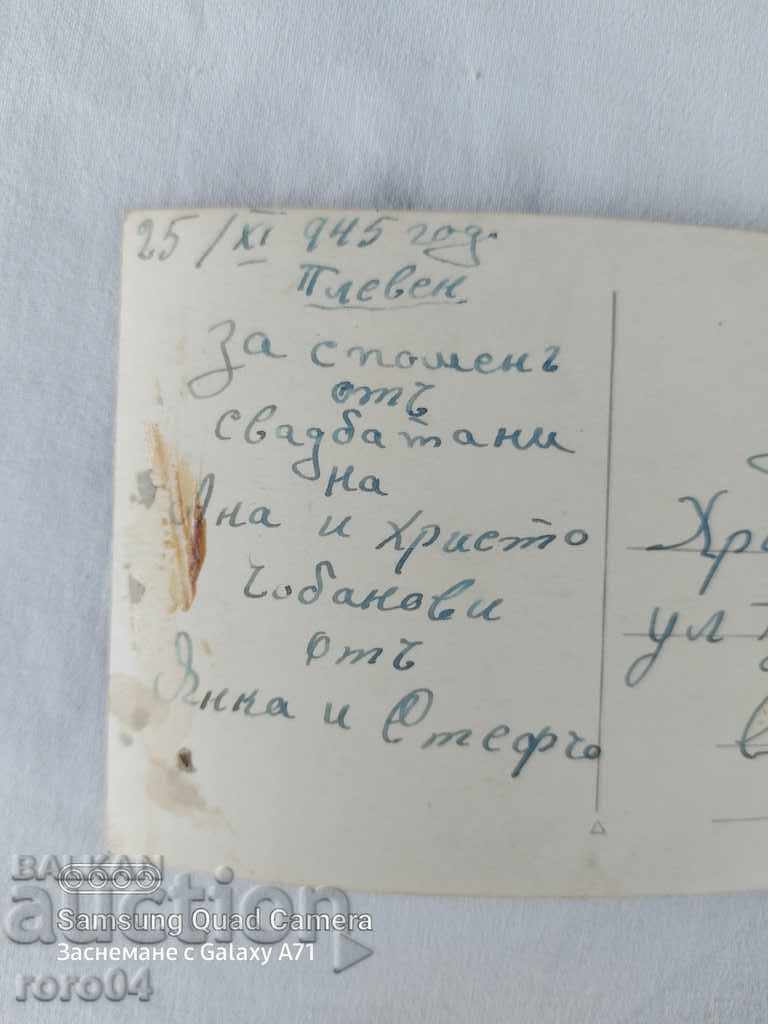 25/XI 945 год.
Плевен
За споменъ
отъ
свадбата ни
на
Яна и Христо
Чобанови
отъ
Янка и Стефчо
Хри
ул
BALKAN
auction
Samsung Quad Camera
Заснемане с Galaxy A71
roro04